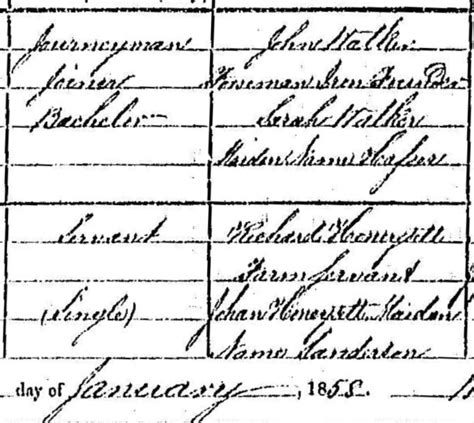 Journeyman
Joiner
Bachelor
John Walker
Foreman Iron Founder
Sarah Walker
Maiden Name
Servant
(Single)
Richard Honeysett
Farm Servant
Johan Honeysett Maiden
Name Sanderson
day of January, 1855.